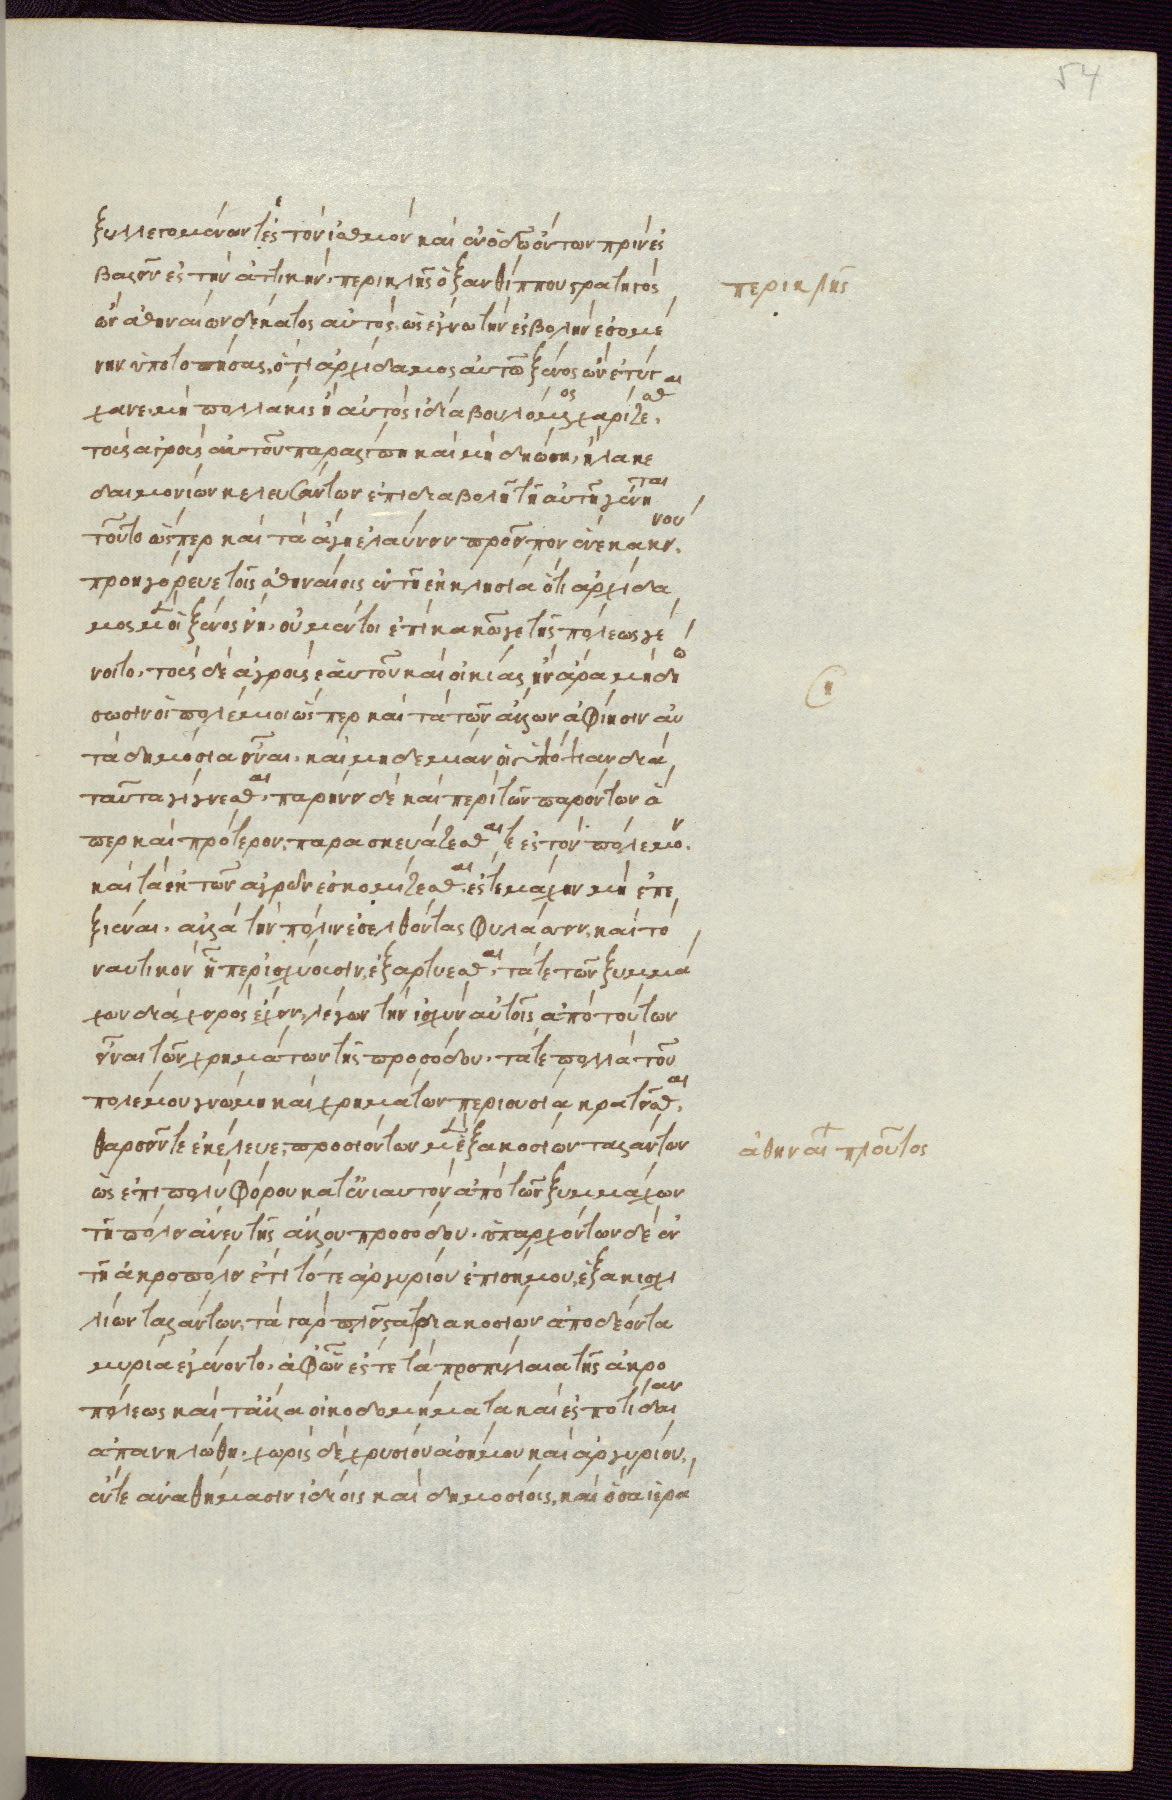 54
ξυλλεγομένων τὲ ἐς τὸν ἰσθμὸν καὶ ἐν ὁδῶ ὄντων πρὶν ἐσ
βαλεῖν ἐς τὴν ἀττικήν. περικλῆς ὁ ξανθίππου στρατηγὸς
περικλῆς
ὢν ἀθηναίων δέκατος αὐτὸς, ὡς ἔγνω τὴν ἐσβολὴν ἐσομέ
νην ὑποτοπήσας, ὅτι ἀρχίδαμος αὐτῶ ξένος ὢν ἐτύγ
χανε. μὴ πολλάκις ἢ αὐτὸς ἰδία βουλόμενος χαρίζεσθαι.
τοὺς ἀγροὺς αὐτοῦ παραλίπη καὶ μὴ δηώση, ἢ λακε
δαιμονίων κελευσάντων ἐπὶ διαβολῆ τῆ αὐτῆ γένηται
τοῦτο ὥσπερ καὶ τὰ ἄγη ἐλαύνειν προεῖπον ἕνεκα κείνου.
προηγόρευε τοῖς ἀθηναίοις ἐν τῆ ἐκκλησία ὅτι ἀρχίδα
μος μὲν οἱ ξένος εἴη. οὐ μέντοι ἐπὶ κακῶ γε τῆς πόλεως γέ
νοιτο. τοὺς δὲ ἀγροὺς ἑαυτοῦ καὶ οἰκίας ἢν ἄρα μὴ δηώ
σωσιν οἱ πολέμιοι ὥσπερ καὶ τὰ τῶν ἄλλων ἀφίησιν αὐ
τὰ δημόσια εἶναι. καὶ μηδεμίαν οἱ ὑποψίαν διὰ
ταῦτα γίγνεσθαι. παρήνει δὲ καὶ περὶ τῶν παρόντων ἅ
περ καὶ πρότερον, παρασκευάζεσθαί τε ἐς τὸν πόλεμον.
καὶ τὰ ἐκ τῶν ἀγρῶν ἐσκομίζεσθαι. ἔς τε μάχην μὴ ἐπε
ξιέναι. ἀλλὰ τὴν πόλιν ἐσελθόντας φυλάσσειν, καὶ τὸ
ναυτικὸν ἧπερ ἰσχύουσιν, ἐξαρτύεσθαι. τά τε τῶν ξυμμά
χων διὰ χειρὸς ἔχειν, λέγων τὴν ἰσχὺν αὐτοῖς ἀπὸ τούτων
εἶναι τῶν χρημάτων τῆς προσόδου. τά τε πολλὰ τοῦ
πολέμου γνώμη καὶ χρημάτων περιουσία κρατεῖσθαι.
θαρσεῖν τε ἐκέλευε, προσιόντων μὲν ἑξακοσίων ταλάντων
ἀθηναί πλοῦτος
ὡς ἐπιπολὺ φόρου κατ ἐνιαυτὸν ἀπὸ τῶν ξυμμάχων
τῆ πόλει ἄνευ τῆς ἄλλου προσόδου. ὑπαρχόντων δὲ ἐν
τῆ ἀκροπόλει ἔτι τότε ἀργυρίου ἐπισήμου, ἑξακισχι
λίων ταλάντων, τὰ γὰρ πλεῖστα τριακοσίων ἀποδέοντα
μύρια ἐγένοντο. ἀφ ὧν ἔς τε τὰ προπύλαια τῆς ἀκρο
πόλεως καὶ τἄλλα οἰκοδομήματα καὶ ἐς ποτίδαιαν
ἀπανηλώθη. χωρὶς δὲ χρυσίου ἀσήμου καὶ ἀργυρίου,
ἔν τε ἀναθήμασιν ἰδίοις καὶ δημοσίοις, καὶ ὅσα ἱερὰ